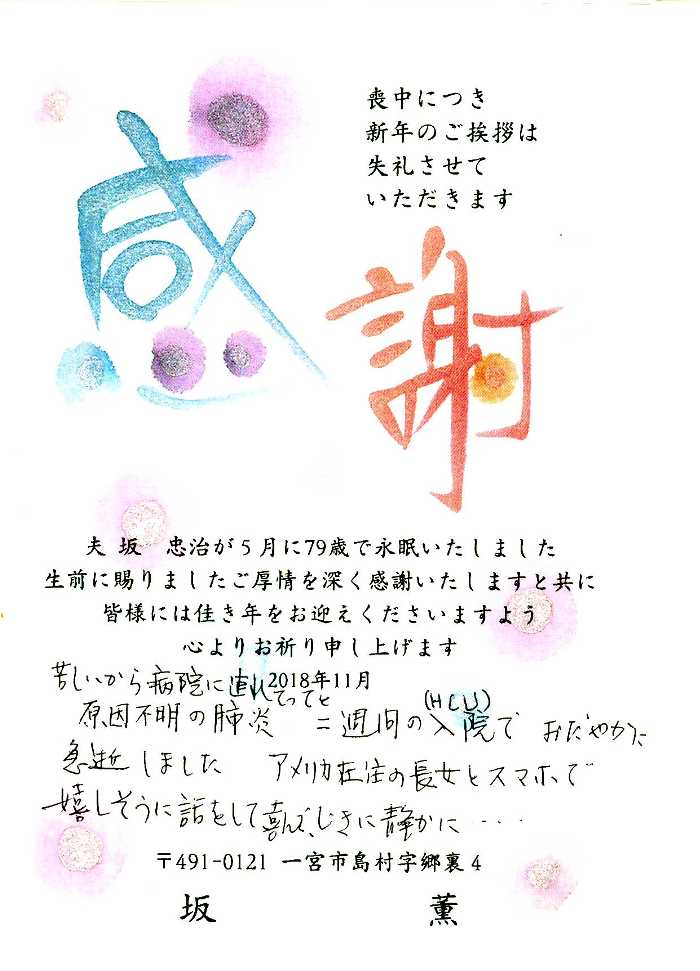 喪中につき
新年のご挨拶は
失礼させて
いただきます
感
謝
夫 坂　忠治が５月に79歳で永眠いたしました
生前に賜りましたご厚情を深く感謝いたしますと共に
皆様には佳き年をお迎えくださいますよう
心よりお祈り申し上げます
2018年11月
苦しいから病院に連れてってと
原因不明の肺炎　二週間の入院で　おだやかに
(HCU)
急逝しました　アメリカ在住の長女とスマホで
嬉しそうに話をして喜んで、じきに静かに・・・・
〒491-0121 一宮市島村字郷裏４
坂　薫